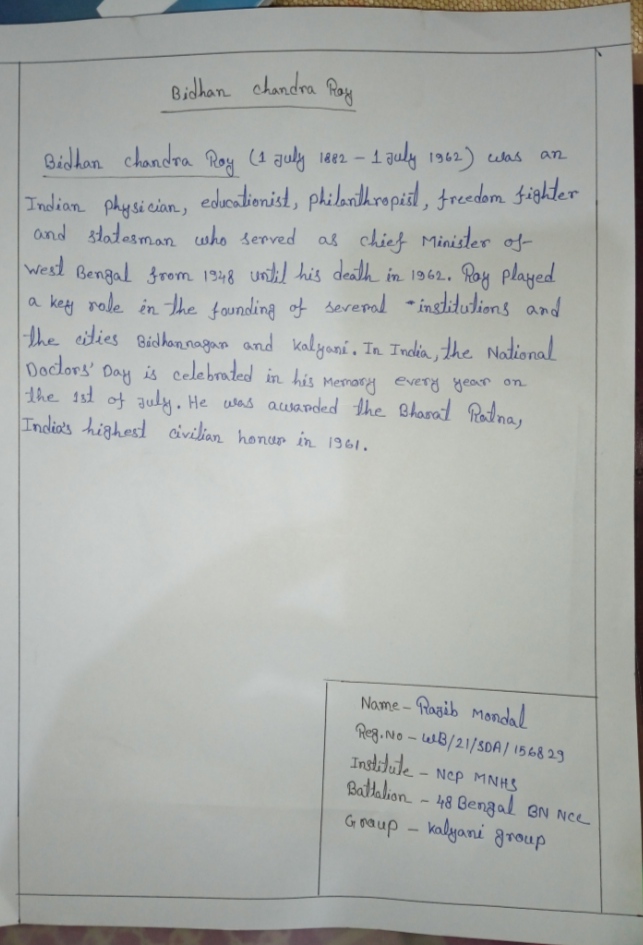 Bidhan chandra Roy
Bidhan chandra Roy (1 July 1882 - 1 July 1962) was an
Indian physician, educationist, philanthropist, freedom fighter
and statesman who served as chief Minister of
west Bengal from 1948 until his death in 1962. Roy played
a key role in the founding of several institutions and
the cities Bidhannagar and Kalyani. In India, the National
Doctors' Day is celebrated in his Memory every year on
the 1st of July. He was awarded the Bharat Ratna,
India's highest civilian honur in 1961.
Name - Razib Mondal
Reg. No - WB/21/SDA/156829
Institute - NCP MNHS
Battalion - 48 Bengal BN NCC
Group - Kalyani group